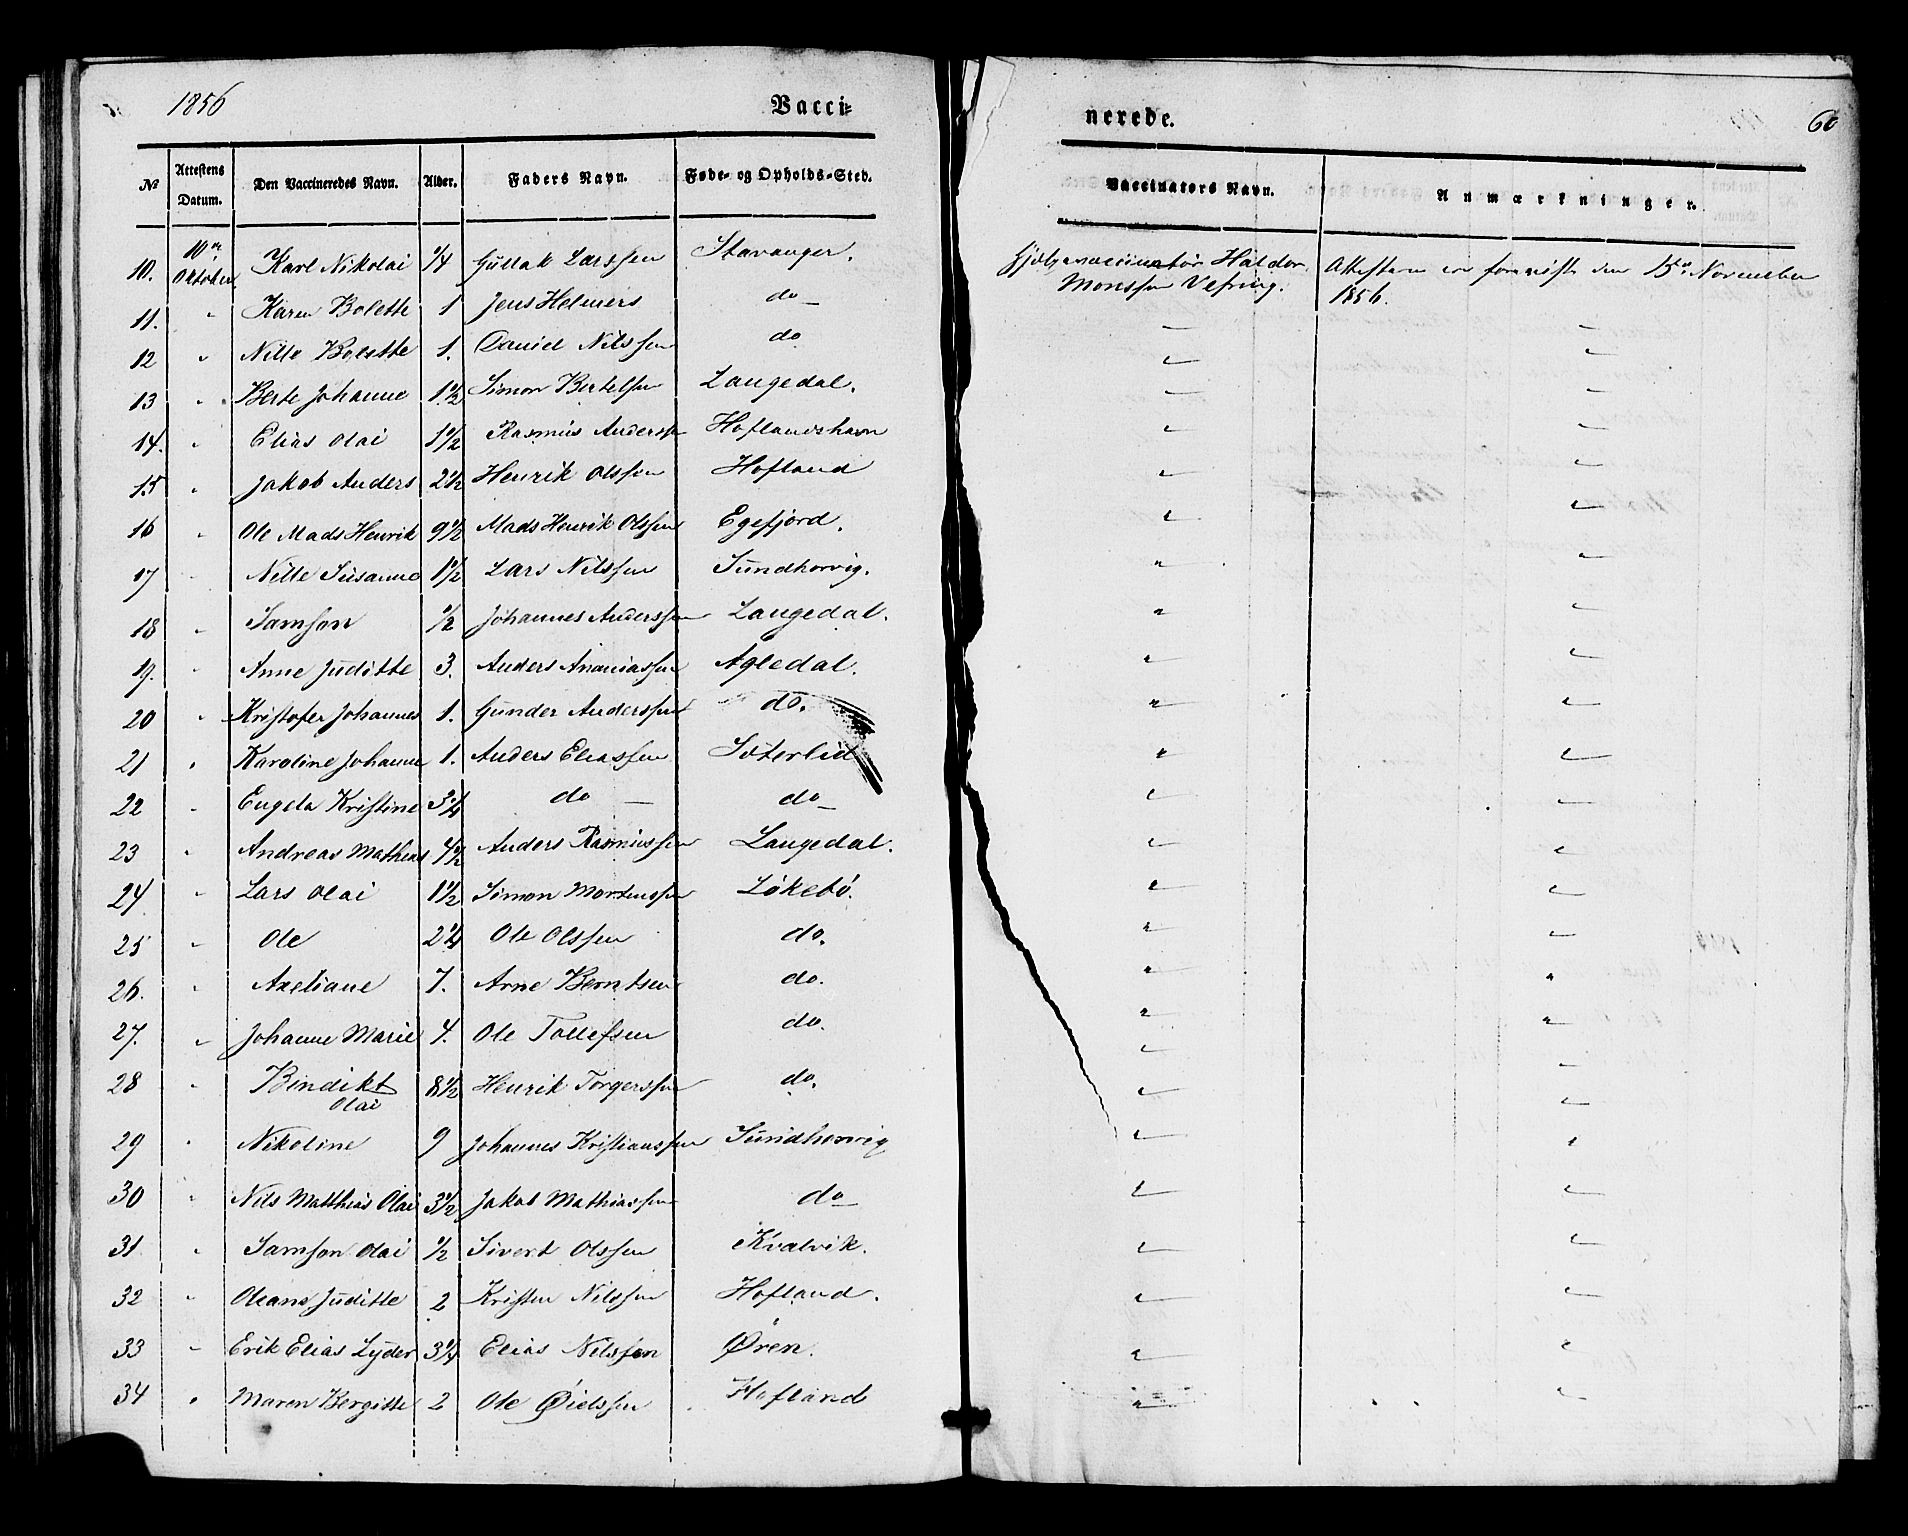 1856
Vacci-
nerede.
60
№ Attestens Datum. Den Vaccineredes Navn. Alder. Faders Navn. Føde- og Opholds-Sted. Vaccinators Navn. Anmærkninger.
10. 10de Oktober Karl Nikolai 1/4 Gullak Larssen Stavanger. Hjelpevaccinatør Haldor Monssen Vefring. Attesten er fornøist den 15de November 1856.
11. " Karen Bolette 1 Jens Helmers do — " "
12 " Nille Bolette 1. Daniel Nilssen do " "
13 " Berte Johanne 1 1/2 Simon Bertelsen Langedal. " "
14. " Elias Olai 1 1/2 Rasmus Anderssen Hoflandshavn " "
15 " Jakob Anders 2 1/2 Henrik Olssen Hofland " "
16 " Ole Mads Henrik 9 1/2 Mads Henrik Olssen Egefjord. " "
17 " Nille Susanne 1 1/2 Lars Nilssen Sundhovvig. " "
18 " Samson 1/2 Johannes Anderssen Langedal. " "
19. " Anne Juditte 3. Anders Ananiassen Agledal. " "
20 " Kristofer Johannes 1. Gunder Anderssen do. " "
21 " Karoline Johanne 1. Anders Eliassen Sæterlid " "
22 " Engela Kristine 3 1/4 do — do — " "
23 " Andreas Mathias 4 1/2 Anders Rasmussen Langedal. " "
24. " Lars Olai 1 1/2 Simon Mortenssen Løkebø. " "
25 " Ole 2 1/4 Ole Olssen do. " "
26. " Axeliane 7. Arne Berntsen do. " "
27. " Johanne Marie 4. Ole Tollefsen do. " "
28 " Bendikt Olai 8 1/2 Henrik Torgerssen do. " "
29 " Nikoline 9 Johannes Kristianssen Sundhovvig " "
30 " Nils Matthias Olai 3 1/2 Jakob Mathiassen do — " "
31 " Samson Olai 1/2 Sivert Olssen Kvalvik. " "
32 " Oleane Juditte 2 Kristen Nilssen Hofland. " "
33 " Erik Elias Lyder 3 1/4 Elias Nilssen Øren. " "
34 " Maren Bergitte 2 Ole Øielssen Hofland " "